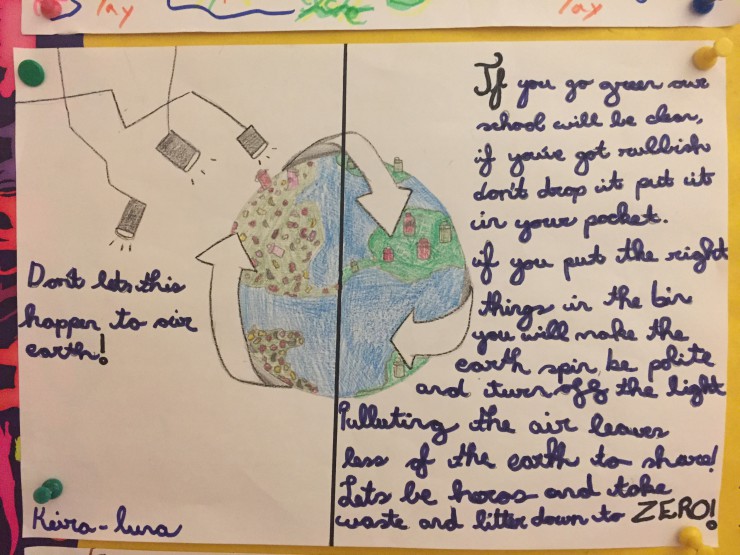 Dont lets this
happen to our
earth!
Keira-luna
If you go green our
school will be clean,
if you've got rubbish
don't drop it put it
in your pocket.
if you put the right
things in the bin
you will make the
earth spin, be polite
and turn off the light
Pulluting the air leaves
less of the earth to share!
Lets be heros and take
waste and litter down to ZERO!